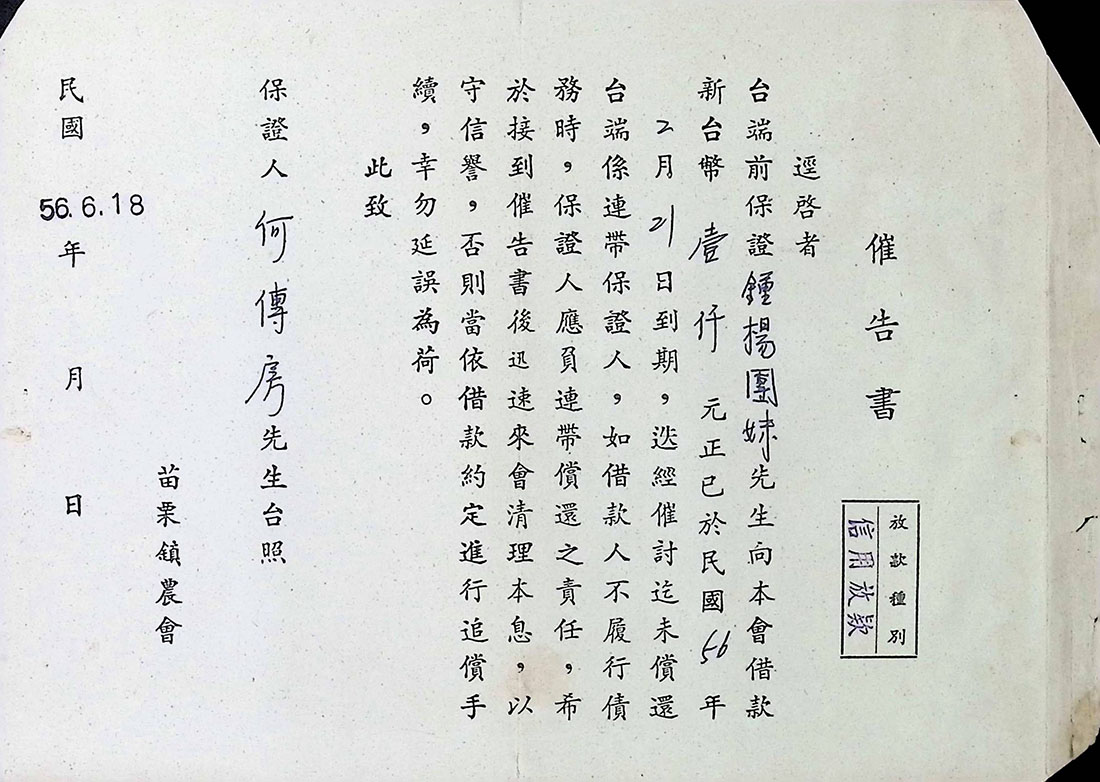 催告書
放款種別
信用放款
逕啓者
台端前保證鍾揚團妹先生向本會借款
新台幣壹仟元正已於民國56年
2月21日到期，迭經催討迄未償還
台端係連帶保證人，如借款人不履行債
務時，保證人應負連帶償還之責任，希
於接到催告書後迅速來會清理本息，以
守信譽，否則當依借款約定進行追償手
續，幸勿延誤為荷。
此致
保證人何傳房先生台照
苗栗鎮農會
民國56.6.18年月日